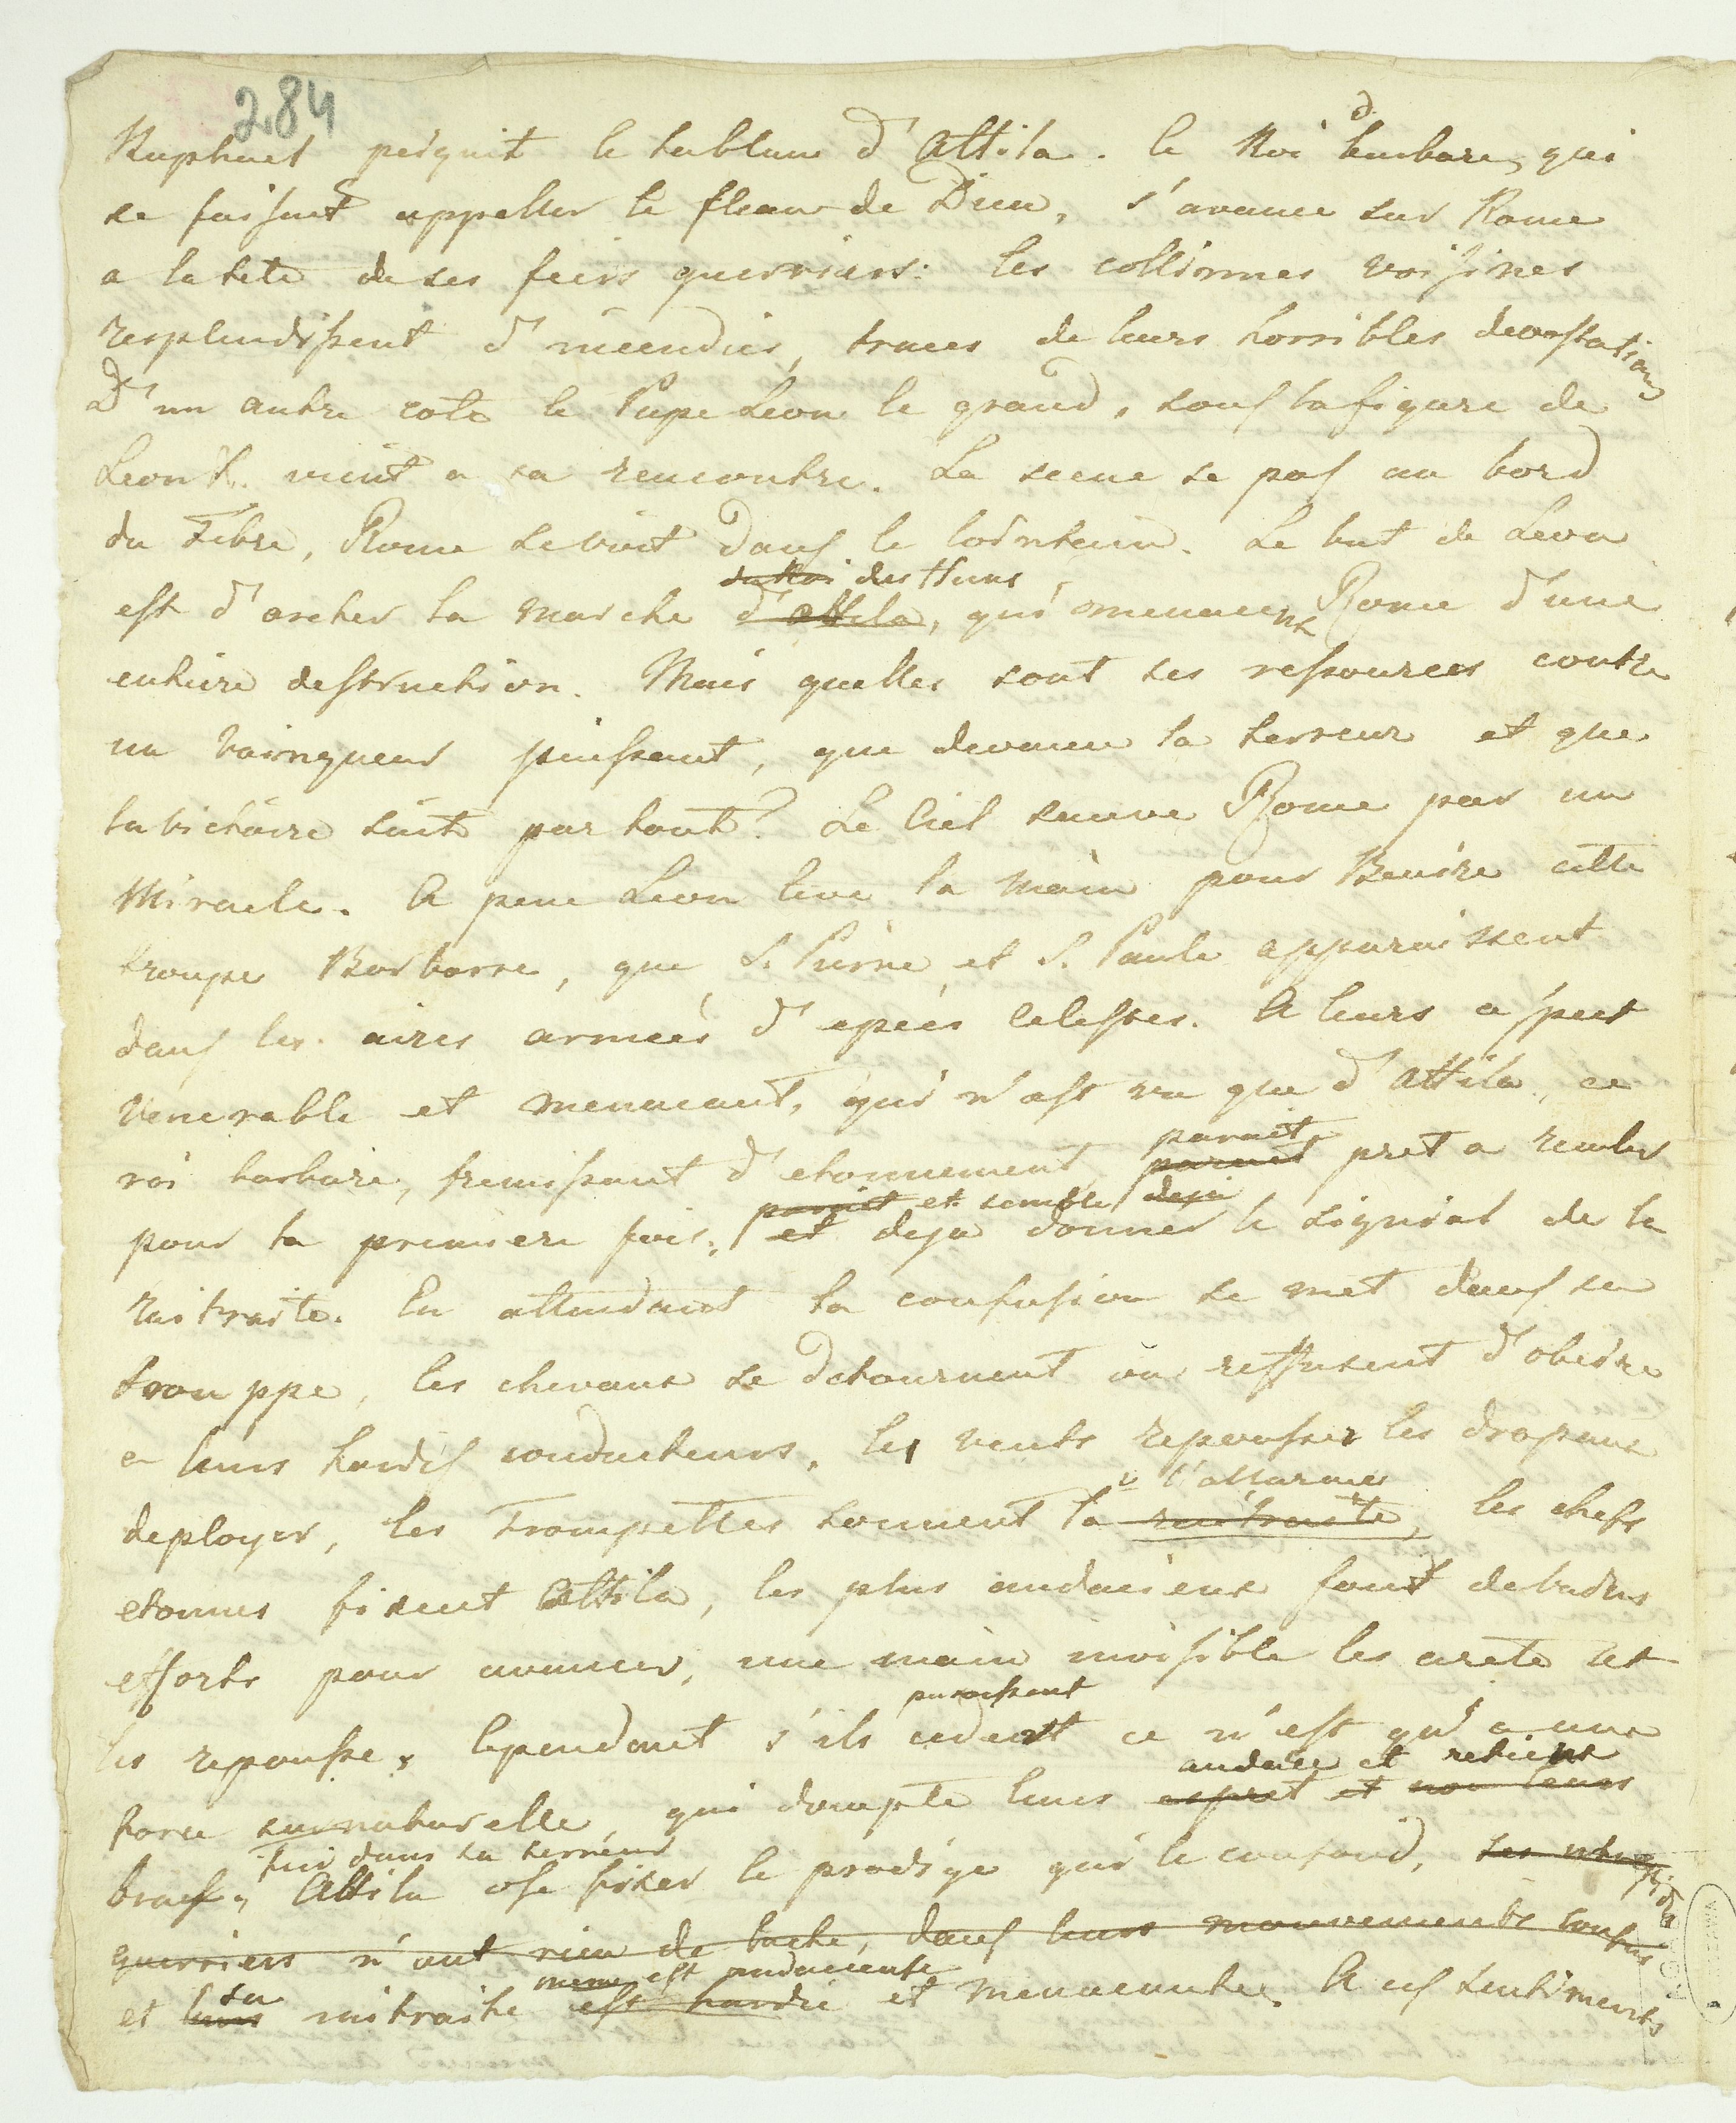 284
Raphael peignit le tableau d'Attila. le Roi barbare, qui
se faisant appeller le fleau de Dieu, s'avance sur Rome
a la tete de ses feirs guerriers: les collinnes voisines
resplendissent d'incendies, traces de leurs horribles devastations
D'un autre coté le Pape Leon le grand, sous la figure de
Leon X. vient a sa rencontre. La scene se pas au bord
du Tibre, Rome se voit dans le lointain. Le but de Leon
du Roi des Huns
est d'areter la marche d'Attila, qui menacent Rome d'une
entiere destruction. Mais quelles sont ses ressources contre
un vainqueur puissant, que devance la terreur et que
la victoire suit par tout? Le Ciel sauve Rome par un
Miracle. A pene Leon leve la main pour Benire cette
troupe Barbarre, que S. Pierre et S. Paule apparaissent
dans les aires armées d'epées celestes. A leurs aspect
venerable et menacant, qui n'est vu que d'Attila, ce
parait
roi barbare, fremissant d'etonnement, parait pret a reculer
parait et semble deja
pour la premiere fois, et deja donner le signial de la
raitraite. En attendant la confusion se met dans sa
trouppe, les chevaux se detournent ou reffusent d'obeire
a leurs hardis conducteurs, les vents repousser les drapeaux
l'allarme
deployer, les trompettes sonnent la raitraite, les chefs
etonnes fixent Attila, les plus audacieux font de
efforts pour avancer, une main invisible les arete et
paraissent
les repousse, Cependant s'ils cedent ce n'est qu'a une
audace et retient
force surnaturelle, qui dompte leurs esprit et non leurs
fui dans sa terreur
bras, Attila ose fixer le prodige qui le confond, ses intrepides
guerriers n'ont rien de lache, dans leurs mouvements confus
sa meme est audacieuse
et leurs raitraite est hardie et menacante. A ces sentiments